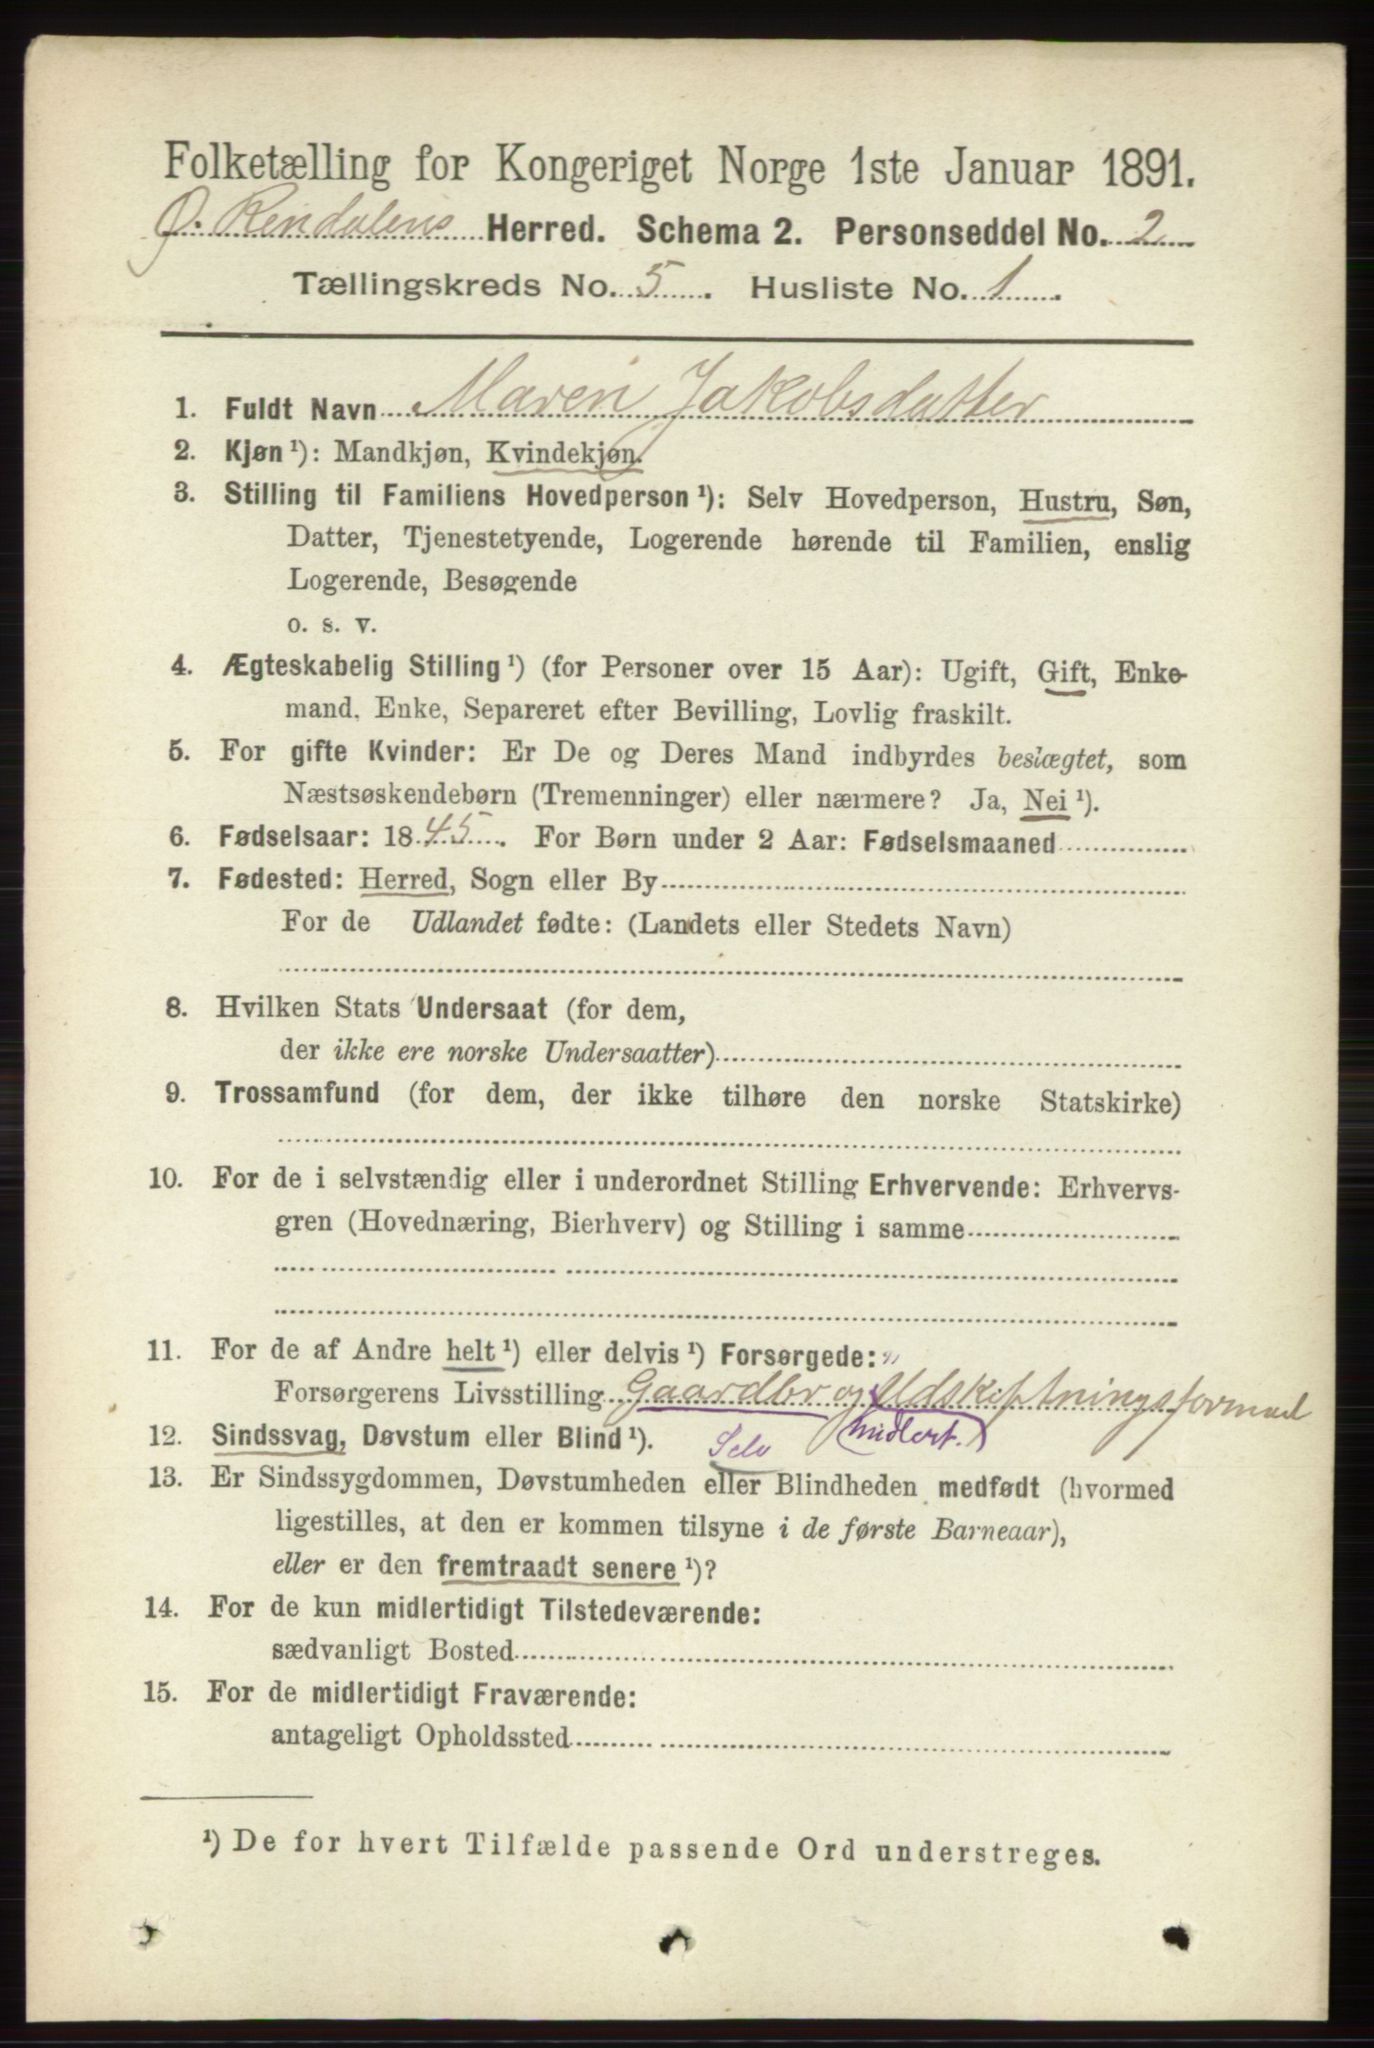 Folketælling for Kongeriget Norge 1ste Januar 1891.
Ø. Rendalens Herred. Schema 2. Personseddel No. 2
Tællingskreds No. 5. Husliste No. 1.
1. Fuldt Navn Maren Jakobsdatter
2. Kjøn ¹): Mandkjøn, Kvindekjøn.
3. Stilling til Familiens Hovedperson ¹): Selv Hovedperson, Hustru, Søn,
Datter, Tjenestetyende, Logerende hørende til Familien, enslig
Logerende, Besøgende
o. s. v.
4. Ægteskabelig Stilling ¹) (for Personer over 15 Aar): Ugift, Gift, Enke-
mand, Enke, Separeret efter Bevilling, Lovlig fraskilt.
5. For gifte Kvinder: Er De og Deres Mand indbyrdes beslægtet, som
Næstsøskendebørn (Tremenninger) eller nærmere? Ja, Nei ¹).
6. Fødselsaar: 1845. For Børn under 2 Aar: Fødselsmaaned
7. Fødested: Herred, Sogn eller By
For de Udlandet fødte: (Landets eller Stedets Navn)
8. Hvilken Stats Undersaat (for dem,
der ikke ere norske Undersaatter)
9. Trossamfund (for dem, der ikke tilhøre den norske Statskirke)
10. For de i selvstændig eller i underordnet Stilling Erhvervende: Erhvervs-
gren (Hovednæring, Bierhverv) og Stilling i samme
11. For de af Andre helt ¹) eller delvis ¹) Forsørgede:
Forsørgerens Livsstilling Gaardbr og Udskiftningsformand
12. Sindssvag, Døvstum eller Blind ¹). Selv midlert.
13. Er Sindssygdommen, Døvstumheden eller Blindheden medfødt (hvormed
ligestilles, at den er kommen tilsyne i de første Barneaar),
eller er den fremtraadt senere ¹)?
14. For de kun midlertidigt Tilstedeværende:
sædvanligt Bosted
15. For de midlertidigt Fraværende:
antageligt Opholdssted
¹) De for hvert Tilfælde passende Ord understreges.